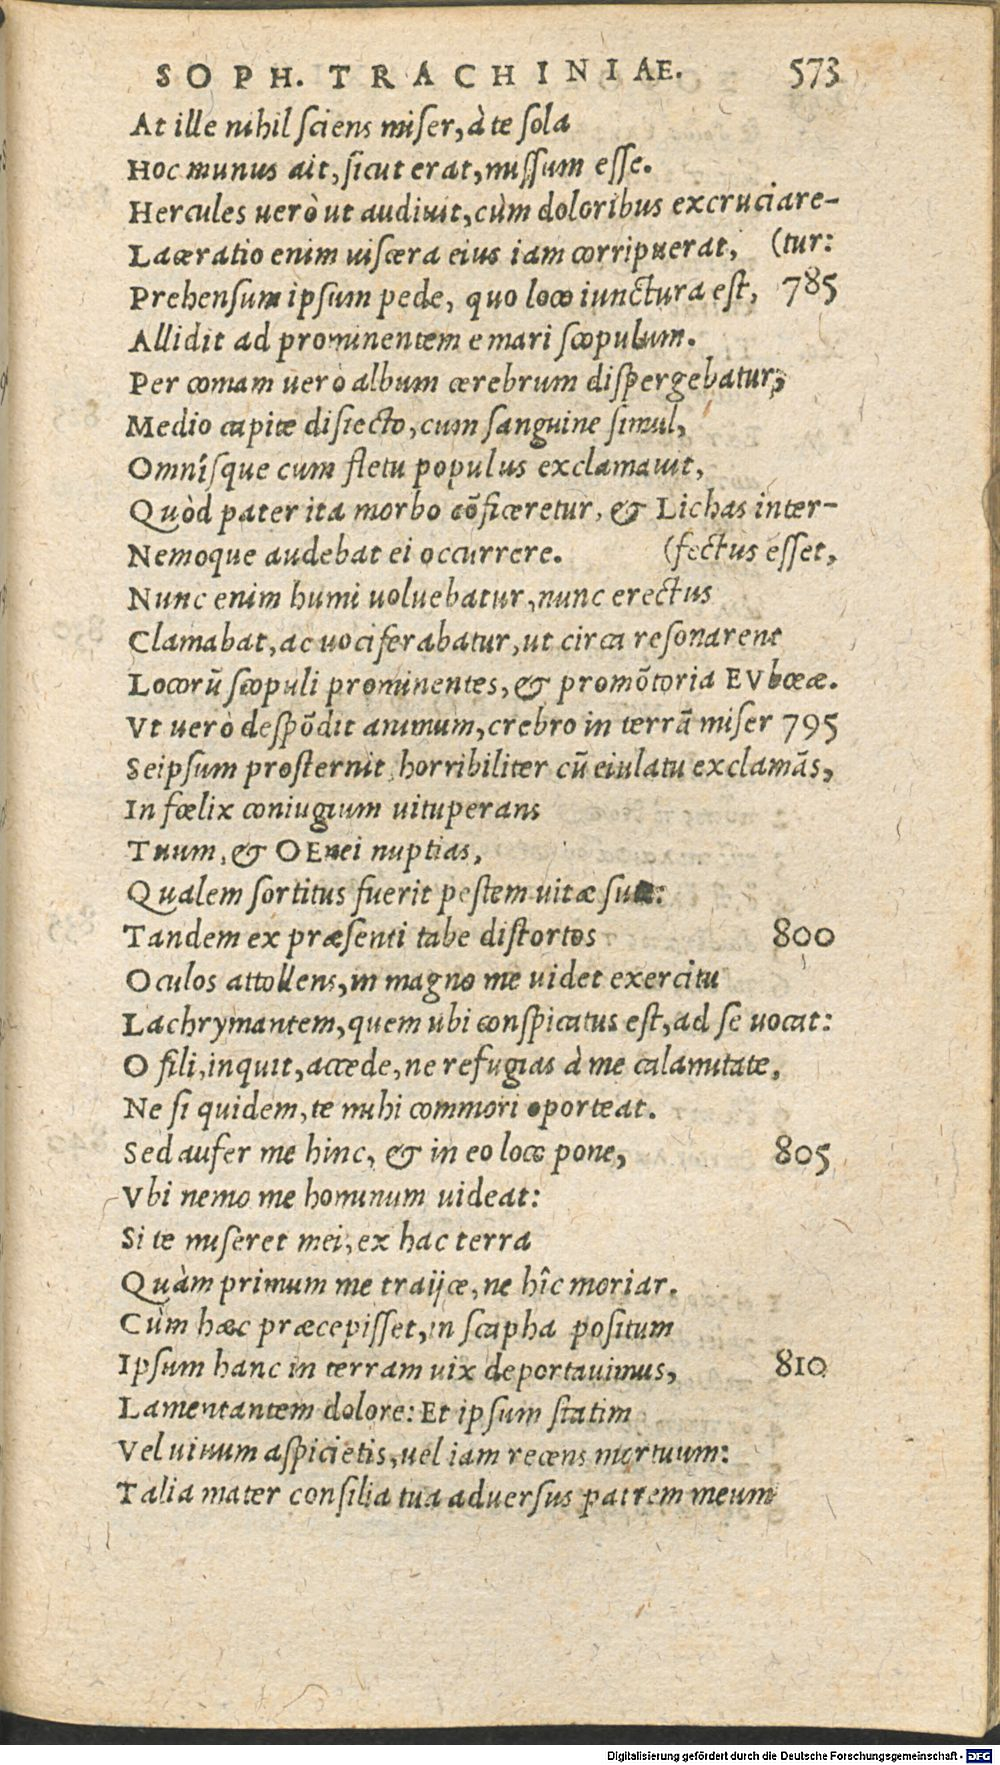 SOPH. TRACHINIAE. 573
At ille nihil sciens miser, à te sola
Hoc munus ait, sicut erat, missum esse.
Hercules uerò ut audiuit, cùm doloribus excruciare-
Laceratio enim uiscera eius iam corripuerat, (tur:
Prehensum ipsum pede, quo loco iunctura est, 785
Allidit ad prominentem e mari scopulum.
Per comam uerò album cerebrum dispergebatur,
Medio capite disiecto, cum sanguine simul,
Omnisque cum fletu populus exclamauit,
Quòd pater ita morbo cōficeretur, & Lichas inter-
Nemoque audebat ei occurrere. (fectus esset,
Nunc enim humi uoluebatur, nunc erectus
Clamabat, ac uociferabatur, ut circa resonarent
Locorū scopuli prominentes, & promōtoria EVbœæ.
Vt uerò despōdit animum, crebro in terrā miser 795
Seipsum prosternit, horribiliter cū eiulatu exclamās,
Infœlix coniugium uituperans
Tuum, & OEnei nuptias,
Qualem sortitus fuerit pestem uitæ suæ:
Tandem ex præsenti tabe distortos 800
Oculos attollens, in magno me uidet exercitu
Lachrymantem, quem ubi conspicatus est, ad se uocat:
O fili, inquit, accede, ne refugias à me calamitate,
Ne si quidem, te mihi commori oporteat.
Sed aufer me hinc, & in eo loco pone, 805
Vbi nemo me hominum uideat:
Si te miseret mei, ex hac terra
Quàm primum me traijce, ne hîc moriar.
Cùm hæc præcepisset, in scapha positum
Ipsum hanc in terram uix deportauimus, 810
Lamentantem dolore: Et ipsum statim
Vel uiuum aspicietis, uel iam recens mortuum:
Talia mater consilia tua aduersus patrem meum
Digitalisierung gefördert durch die Deutsche Forschungsgemeinschaft - DFG